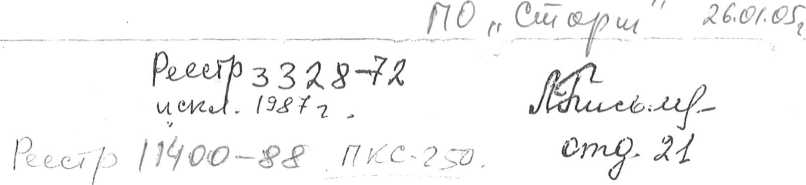 ПО „Сторм" 26.01.05г.
Реестр 3328-72
искл. 1987г.
Реестр 11400-88 ПКС-250.
отд. 21